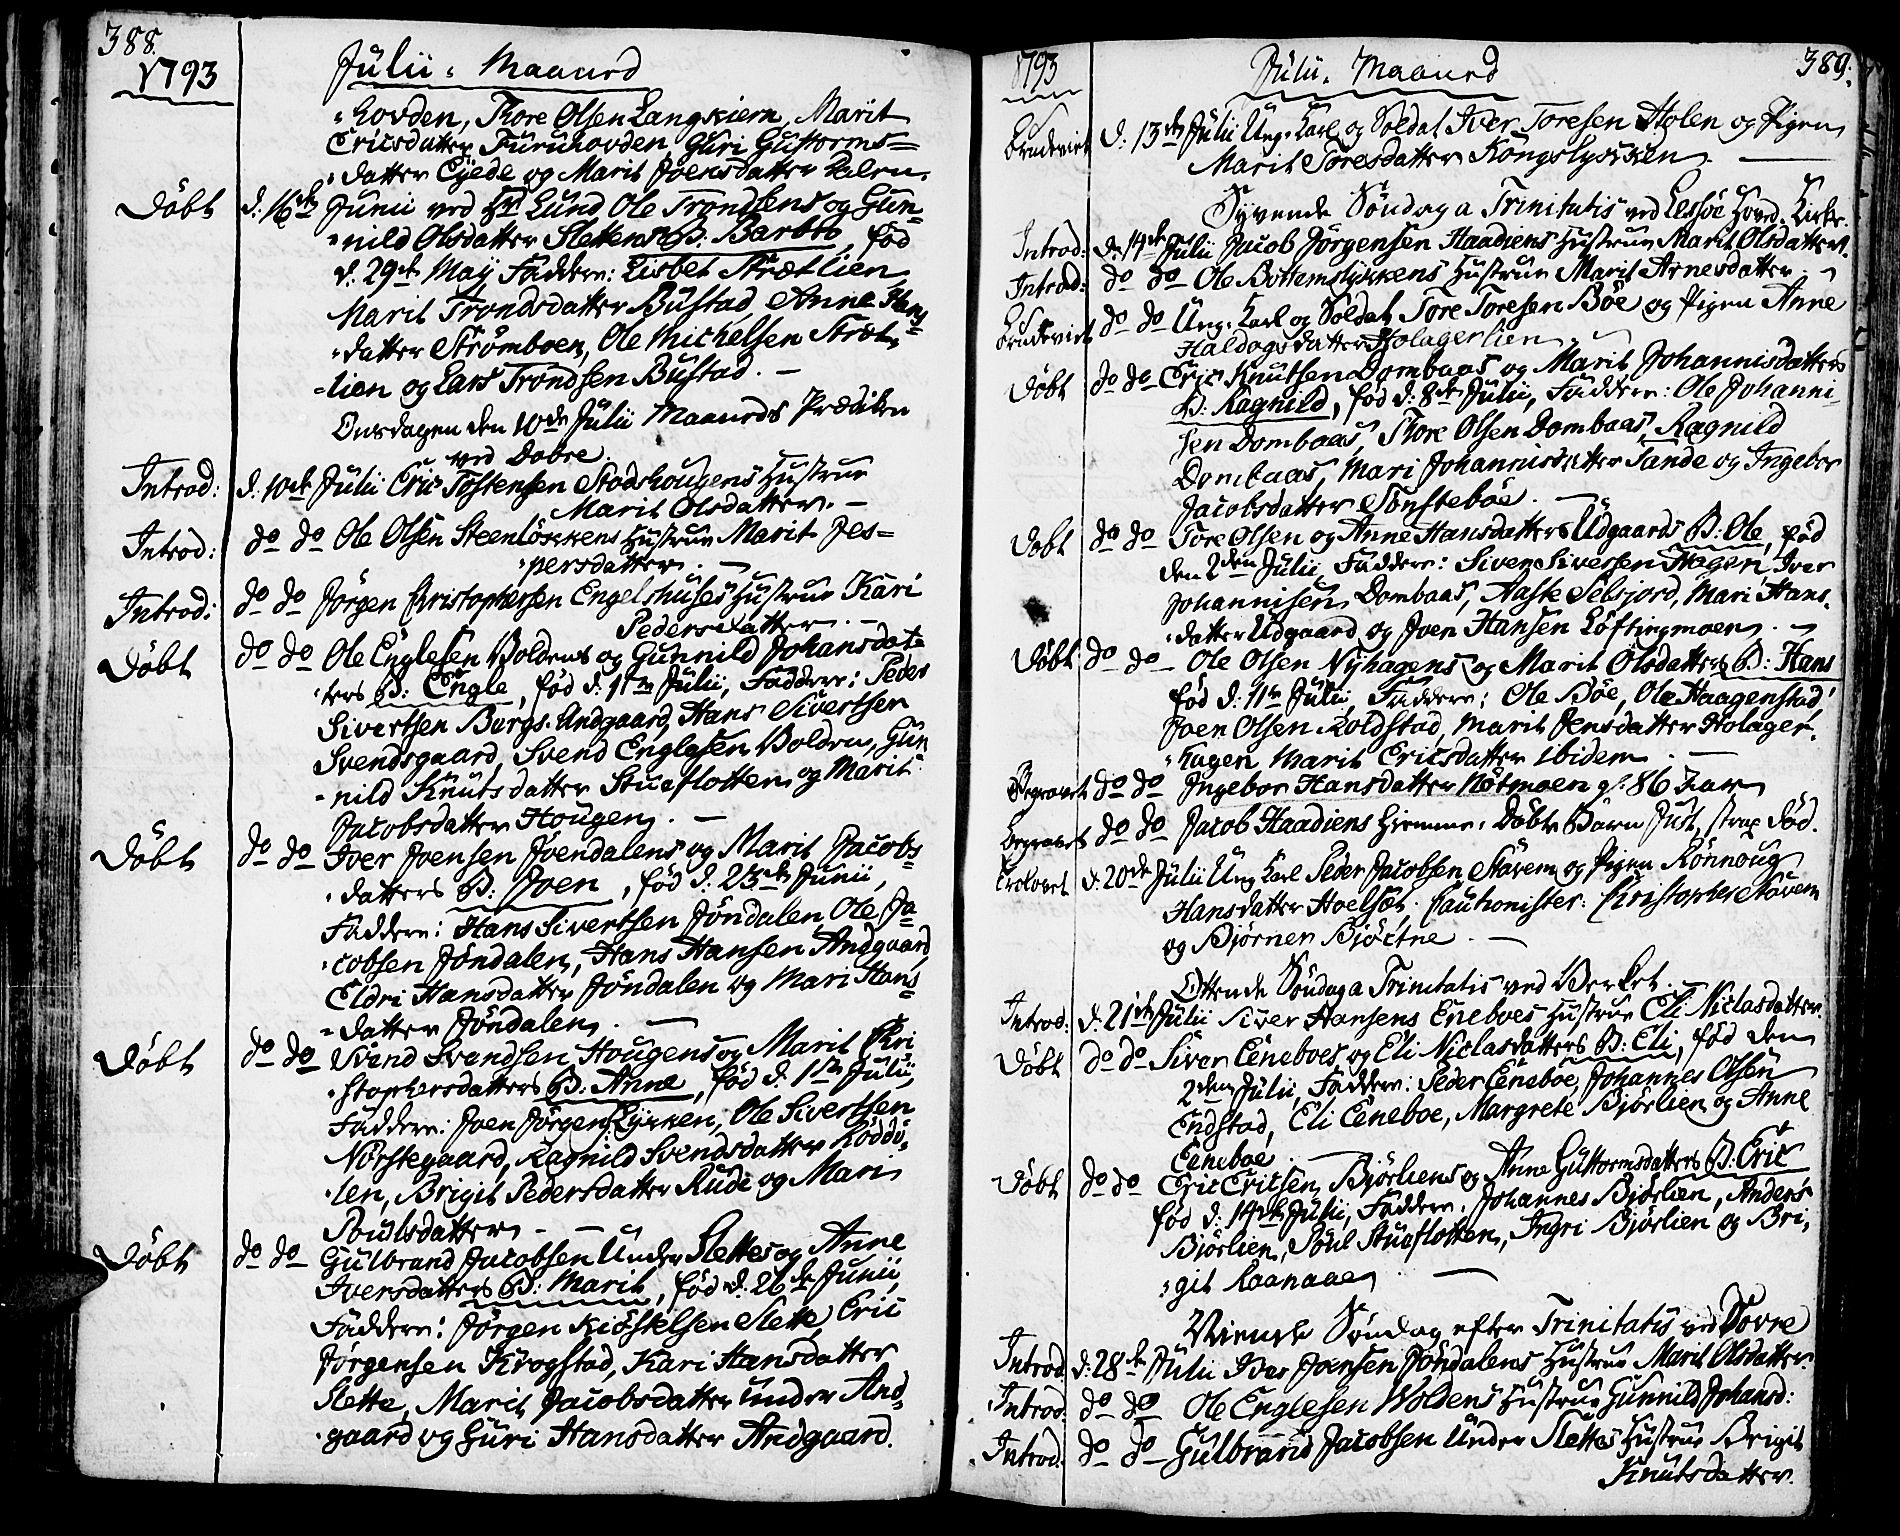 388.
1793
Julii. Maaned
hovden, Thore Olsen Langkiern, Marit
Ericsdatter Furuhovden Guri Guttorms=
datter Eyede og Marit Joensdatter
Döbt d: 16de Junii ved Hr Lund Ole Trondsens og Gun=
nild Olsdatter Slettens B: Barbro, föd
d: 29de May, Faddere: Lisbet Strætlien
Marit Trondsdatter Bustad, Anne Hans=
datter Strømboen, Ole Michelsen Stræt=
lien og Lars Trondsen Bustad. —
Onsdagen den 10de Julii Maaneds Prædiken
ved Dovre.
Introd: d: 10de Julii Eric Tostensen Stodshougens Hustrue
Marit Olsdatter. —
Introd: do do Ole Olsen Steenlökkens Hustrue Marit Jes=
persdatter. —
Introd: do do Jörgen Christophersen Engelshuses Hustrue Kari
Pedersdatter. —
Döbt do do Ole Englesen Voldens og Gunnild Johansdat=
ters B: Engle, föd d: 1ste Julii, Faddere: Peder
Sivertsen Bergs. Andgaard, Hans Sivertsen
Svendsgaard, Svend Englesen Volden, Gun
nild Knutsdatter Stueflotten og Marit
Jacobsdatter Hougen. —
Döbt do do Iver Joensen Jöendalens og Marit Jacobs=
datters B: Joen, föd d: 23de Junii,
Faddere: Hans Sivertsen Jöndalen, Ole Ja=
cobsen Jöndalen, Hans Hansen Andgaard
Eldri Hansdatter Jöndalen og Mari Hans=
datter Jöndalen. —
Döbt do do Svend Svendsen Hougens og Marit Chri
stophersdatters B: Anne, föd d: 1ste Julii,
Faddere: Joen Jörgens: Lykken, Ole Sivertsen
Norstegaard, Ragnild Svendsdatter Röddö=
len, Brigit Pedersdatter Rude og Mari
Poulsdatter. —
Döbt do do Gulbrand Jacobsen Under Slettes og Anne
Iversdatters B: Marit, föd d: 26de Junii
Faddere: Jörgen Kiöstelsen Slette, Eric
Jörgensen Krogstad, Kari Hansdatter
Slette, Marit Jacobsdatter under And=
gaard og Guri Hansdatter Andgaard.
1793
Julii. Maaned
389.
Brudeviet d: 13de Julii Ung. Karl og Soldat Iver Toresen Holen og Pigen
Marit Toresdatter Kongslykken. —
Syvende Söndag a Trinitatis ved Lessöe Hoved. Kirke.
Introd: d: 14de Julii Jacob Jörgensen Haadiens Hustrue Marit Olsdatter.
Introd: do do Ole Bottemslykkens Hustrue Marit Arnesdatter. —
Brudeviet do do Ung. Karl og Soldat Tore Toresen Böe og Pigen Anne
Haldogsdatter Holagerlien
Döbt do do Eric Knutsen Dombaas og Marit Johannisdatters
B: Ragnild, föd d: 8de Julii, Faddere: Ole Johanni=
sen Dombaas, Thore Olsen Dombaas, Ragnild
Dombaas, Mari Johannisdatter Sande og Ingebor
Jacobsdatter Tonsteböe. —
Döbt do do Tore Olsen og Anne Hansdatters Udgaards B: Ole, föd
den 2den Julii, Faddere: Siver Siversen Hagen, Iver
Johannisen Dombaas, Aaste Selsjord, Mari Hans=
datter Udgaard og Joen Hansen Löftingmoen. —
Döbt do do Ole Olsen Nyhagens og Marit Olsdatters B: Hans
föd d: 11te Julii, Faddere: Ole Böe, Ole Haagenstad,
Joen Olsen Koldstad, Marit Jensdatter Holager.
hagen Marit Ericsdatter ibidem. —
Begravet do do Ingebor Hansdatter Nötmoen gl: 86 Aar
Begravet do do Jacob Haadiens hiemme. Döbte Barn Just, strax död.
Trolovet d: 20de Julii Ung Karl Peder Jacobsen Stavem og Pigen Rönnoug
Hansdatter Hoelsæt. Cautionister: Christopher Stavem
og Björner Bjöctne. —
Ottende Söndag a Trinitatis ved Verket. —
Introd: d: 21de Julii Siver Hansens Eneboes Hustrue Eli Niclasdatter.
Döbt do do Siver Eneboes og Eli Niclasdatters B: Eli, föd den
2den Julii, Faddere: Peder Eneböe, Johannes Olsen
Endstad, Eli Eeneboe, Margrete Björlien og Anne
Eeneboe. —
Döbt do do Eric Ericsen Björliens og Anne Guttormsdatters B: Eric
föd d: 14de Julii, Faddere. Johannes Björlien, Anders
Björlien, Poul Stueflotten, Ingri Björlien og Bri=
git Raanaae. —
Niende Söndag efter Trinitatis ved Dovre
Introd. d: 28de Julii Iver Joensen Jöndalens Hustrue Marit Olsdatter.
Introd. do do Ole Englesen Woldens Hustrue Gunnild Johansd:
Introd: do do Gulbrand Jacobsen Under Slettes Hustrue Brigit
Knutsdatter.